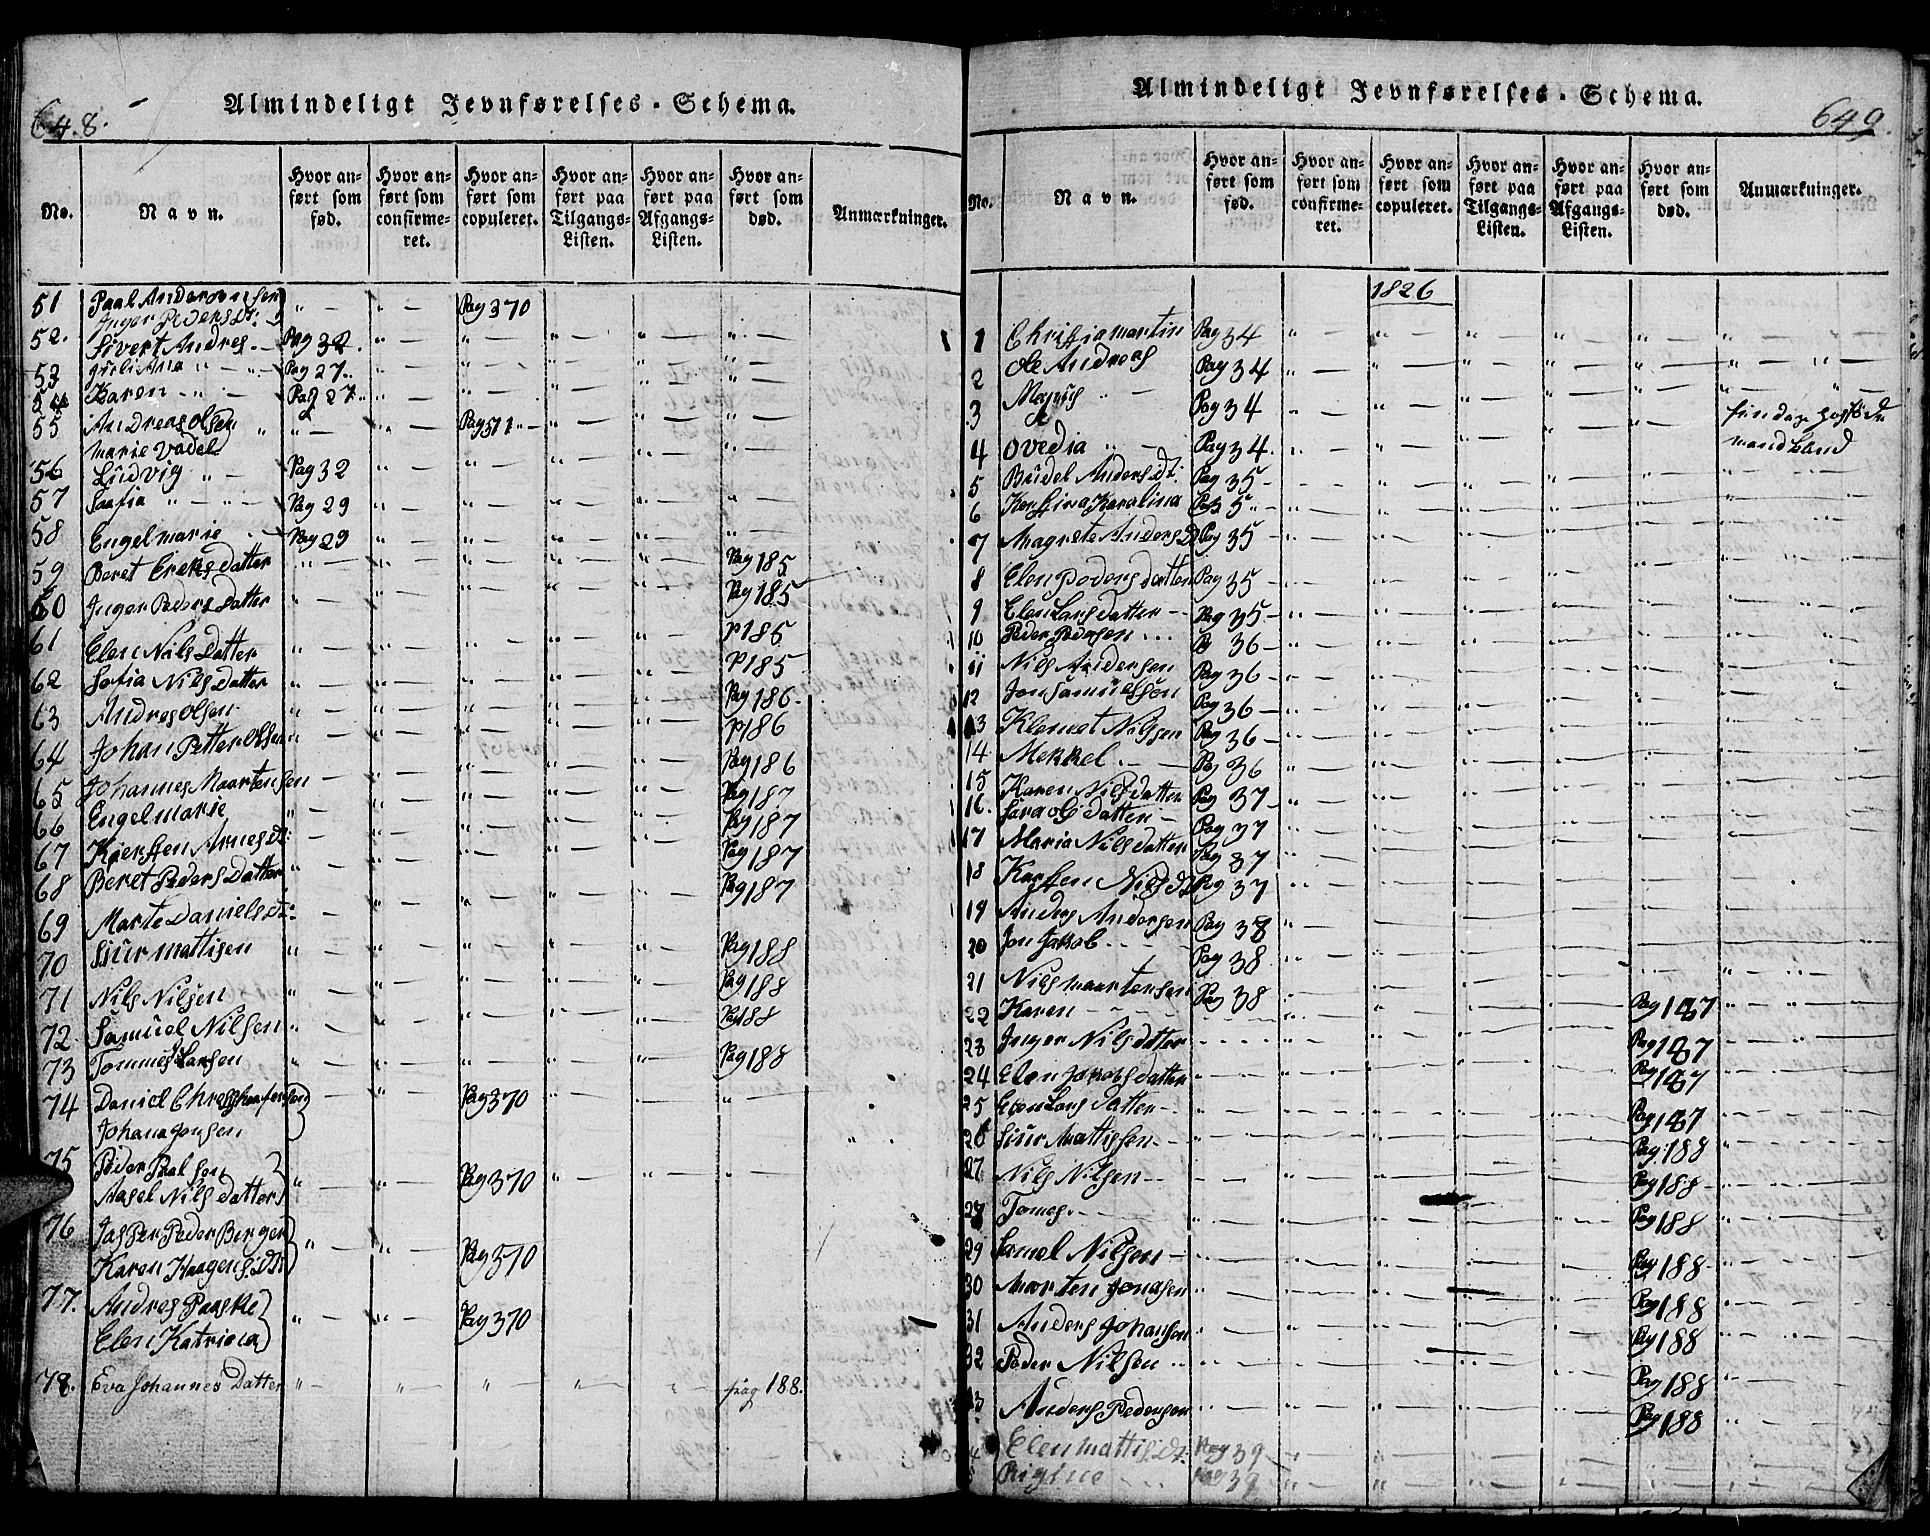 648.
Almindeligt Jevnførelses-Schema.
No. Navn. Hvor anført som fød. Hvor anført som confirmeret. Hvor anført som copuleret. Hvor anført paa Tilgangs-Listen. Hvor anført paa Afgangs-Listen. Hvor anført som død. Anmærkninger.
51 Paal Andersønsen Pag 370
Inger Peders Dt:
52. Sivert Andres. Pag 32.
53 Juli Ana Pag 27
54 Karen Pag 27
55 Andreas Olsen Pag 511
Marie Vadel
56 Ludvig Pag 32
57 Saafia Pag 29
58 Engelmarie Pag 29
59 Beret Ereks Datter Pag 185
60 Inger Peders Datter Pag 185
61 Elen Nils Datter P 185
62 Sofia Nils Datter P 185
63 Andres Olsen Pag 186
64 Johan Petter Olsen P 186
65 Johannes Maartensen Pag 186
66 Engelmarie Pag 187
67 Kiersten Arnes Dt: Pag 187
68 Beret Peders Datter Pag 187
69 Marte Daniels Dt: Pag 187
70 Siur Mattisen Pag 188
71 Nils Nilsen Pag 188
72 Samuel Nilsen Pag 188
73 Tommes Larsen Pag 188
74 Daniel Pag 370
Johana Jonsen
75 Peder Paalsen Pag 370
Aasel Nils Datter
76 Jasper Peder Berger Pag 370
Karen Haagens Dtr
77. Andres Paaske Pag 370
Elen Katriana
78. Eva Johannes Datter pag 188.
649.
Almindeligt Jevnførelses-Schema.
No. Navn. Hvor anført som fød. Hvor anført som confirmeret. Hvor anført som copuleret. Hvor anført paa Tilgangs-Listen. Hvor anført paa Afgangs-Listen. Hvor anført som død. Anmærkninger.
1826
1 Christia Martin Pag 34
2 Ole Andreas Pag 34
3 Magnus Pag 34
4 Ovedia Pag 34.
5 Budel Anders Dt: Pag 35
6 Kerstina Karalina Pag 35
7 Magrete Anders D Pag 35
8 Elen Peders Datter Pag 35
9 Elen Lars Datter Pag 35
10 Peder Pedersen P 36
11 Nils Andersen Pag 36
12 Jon Samuelssen Pag 36
13 Klemet Nilssen Pag 36
14 Mekkel Pag 36
15 Karen Nils Datter Pag 37
16. Sara Ols Datter Pag 37
17 Maria Nils Datter Pag 37
18 Karsten Nils Dt Pag 37
19 Anders Andersen Pag 38
20 Jon Jakob Pag 38
21 Nils Maartensen Pag 38
22 Karen Pag 187
23 Inger Nils Datter Pag 187
24 Elen Jakobs Datter Pag 187
25 Elen Lars Datter Pag 187
26 Siur Mattissen Pag 188
27 Nils Nilsen Pag 188
27 Tomes Pag 188
29 Samel Nilsen Pag 188
30 Marten Jonasen Pag 188
31 Anders Johansen Pag 188
32 Peder Nilsen Pag 188
33 Anders Pedersen Pag 188
4 Elen Mattis Dt. Pag 39
5 Rigine Pag 39